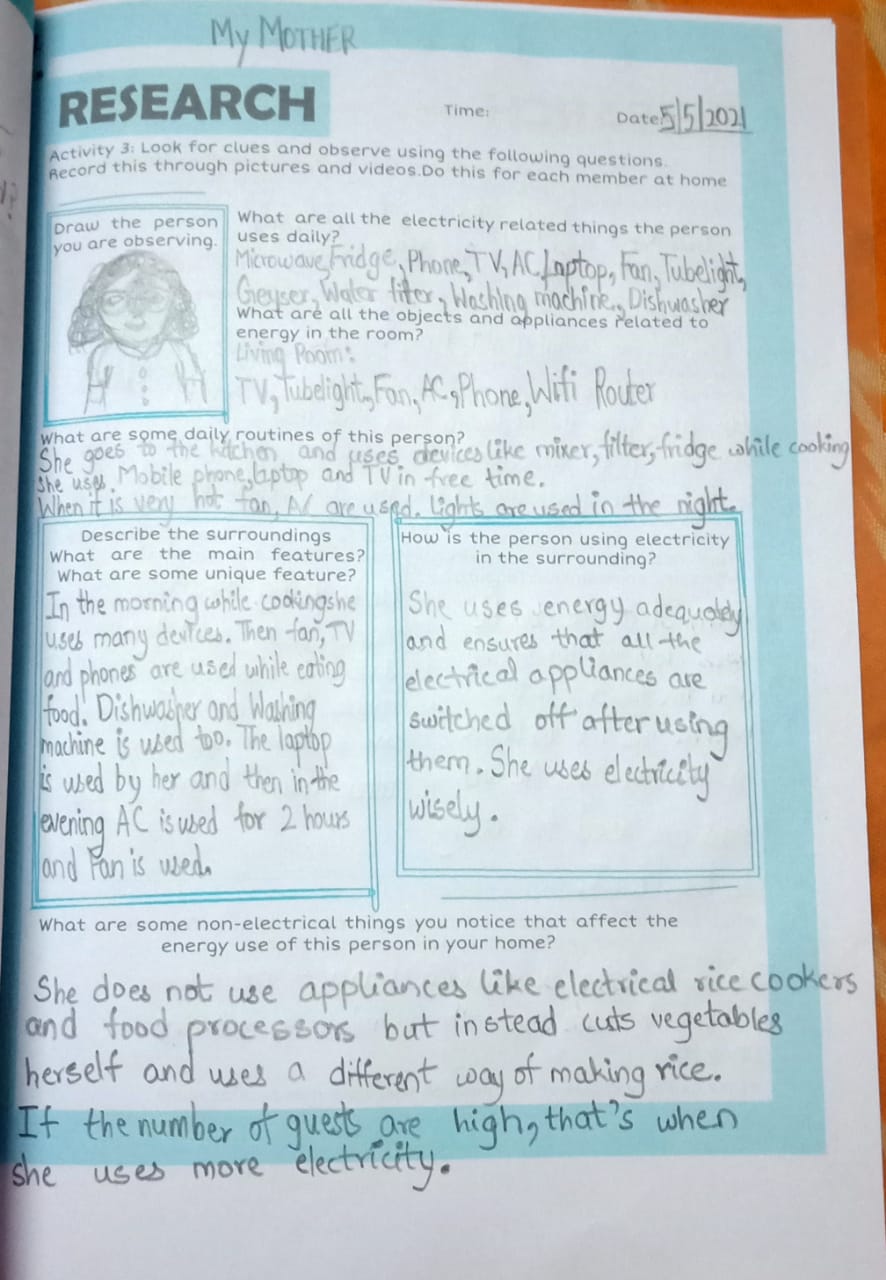 My MOTHER
RESEARCH
Time:
Date: 5/5/2021
Activity 3: Look for clues and observe using the following questions.
Record this through pictures and videos.Do this for each member at home
Draw the person
you are observing.
What are all the electricity related things the person
uses daily?
Microwave, Fridge, Phone, TV, AC, Laptop, Fan, Tubelight,
Geyser, Water filter, Washing machine, Dishwasher
What are all the objects and appliances related to
energy in the room?
Living Room:
TV, Tubelight, Fan, AC, Phone, Wifi Router
What are some daily routines of this person?
She goes to the kitchen and uses devices like mixer, filter, fridge while cooking
She uses Mobile phone, laptop and TV in free time.
When it is very hot fan, AC are used. Lights are used in the night.
Describe the surroundings
What are the main features?
What are some unique feature?
In the morning while cooking she
uses many devices. Then fan, TV
and phones are used while eating
food. Dishwasher and Washing
machine is used too. The laptop
is used by her and then in the
evening AC is used for 2 hours
and Fan is used.
How is the person using electricity
in the surrounding?
She uses energy adequately
and ensures that all the
electrical appliances are
switched off after using
them. She uses electricity
wisely.
What are some non-electrical things you notice that affect the
energy use of this person in your home?
She does not use appliances like electrical rice cookers
and food processors but instead cuts vegetables
herself and uses a different way of making rice.
If the number of guests are high, that's when
she uses more electricity.